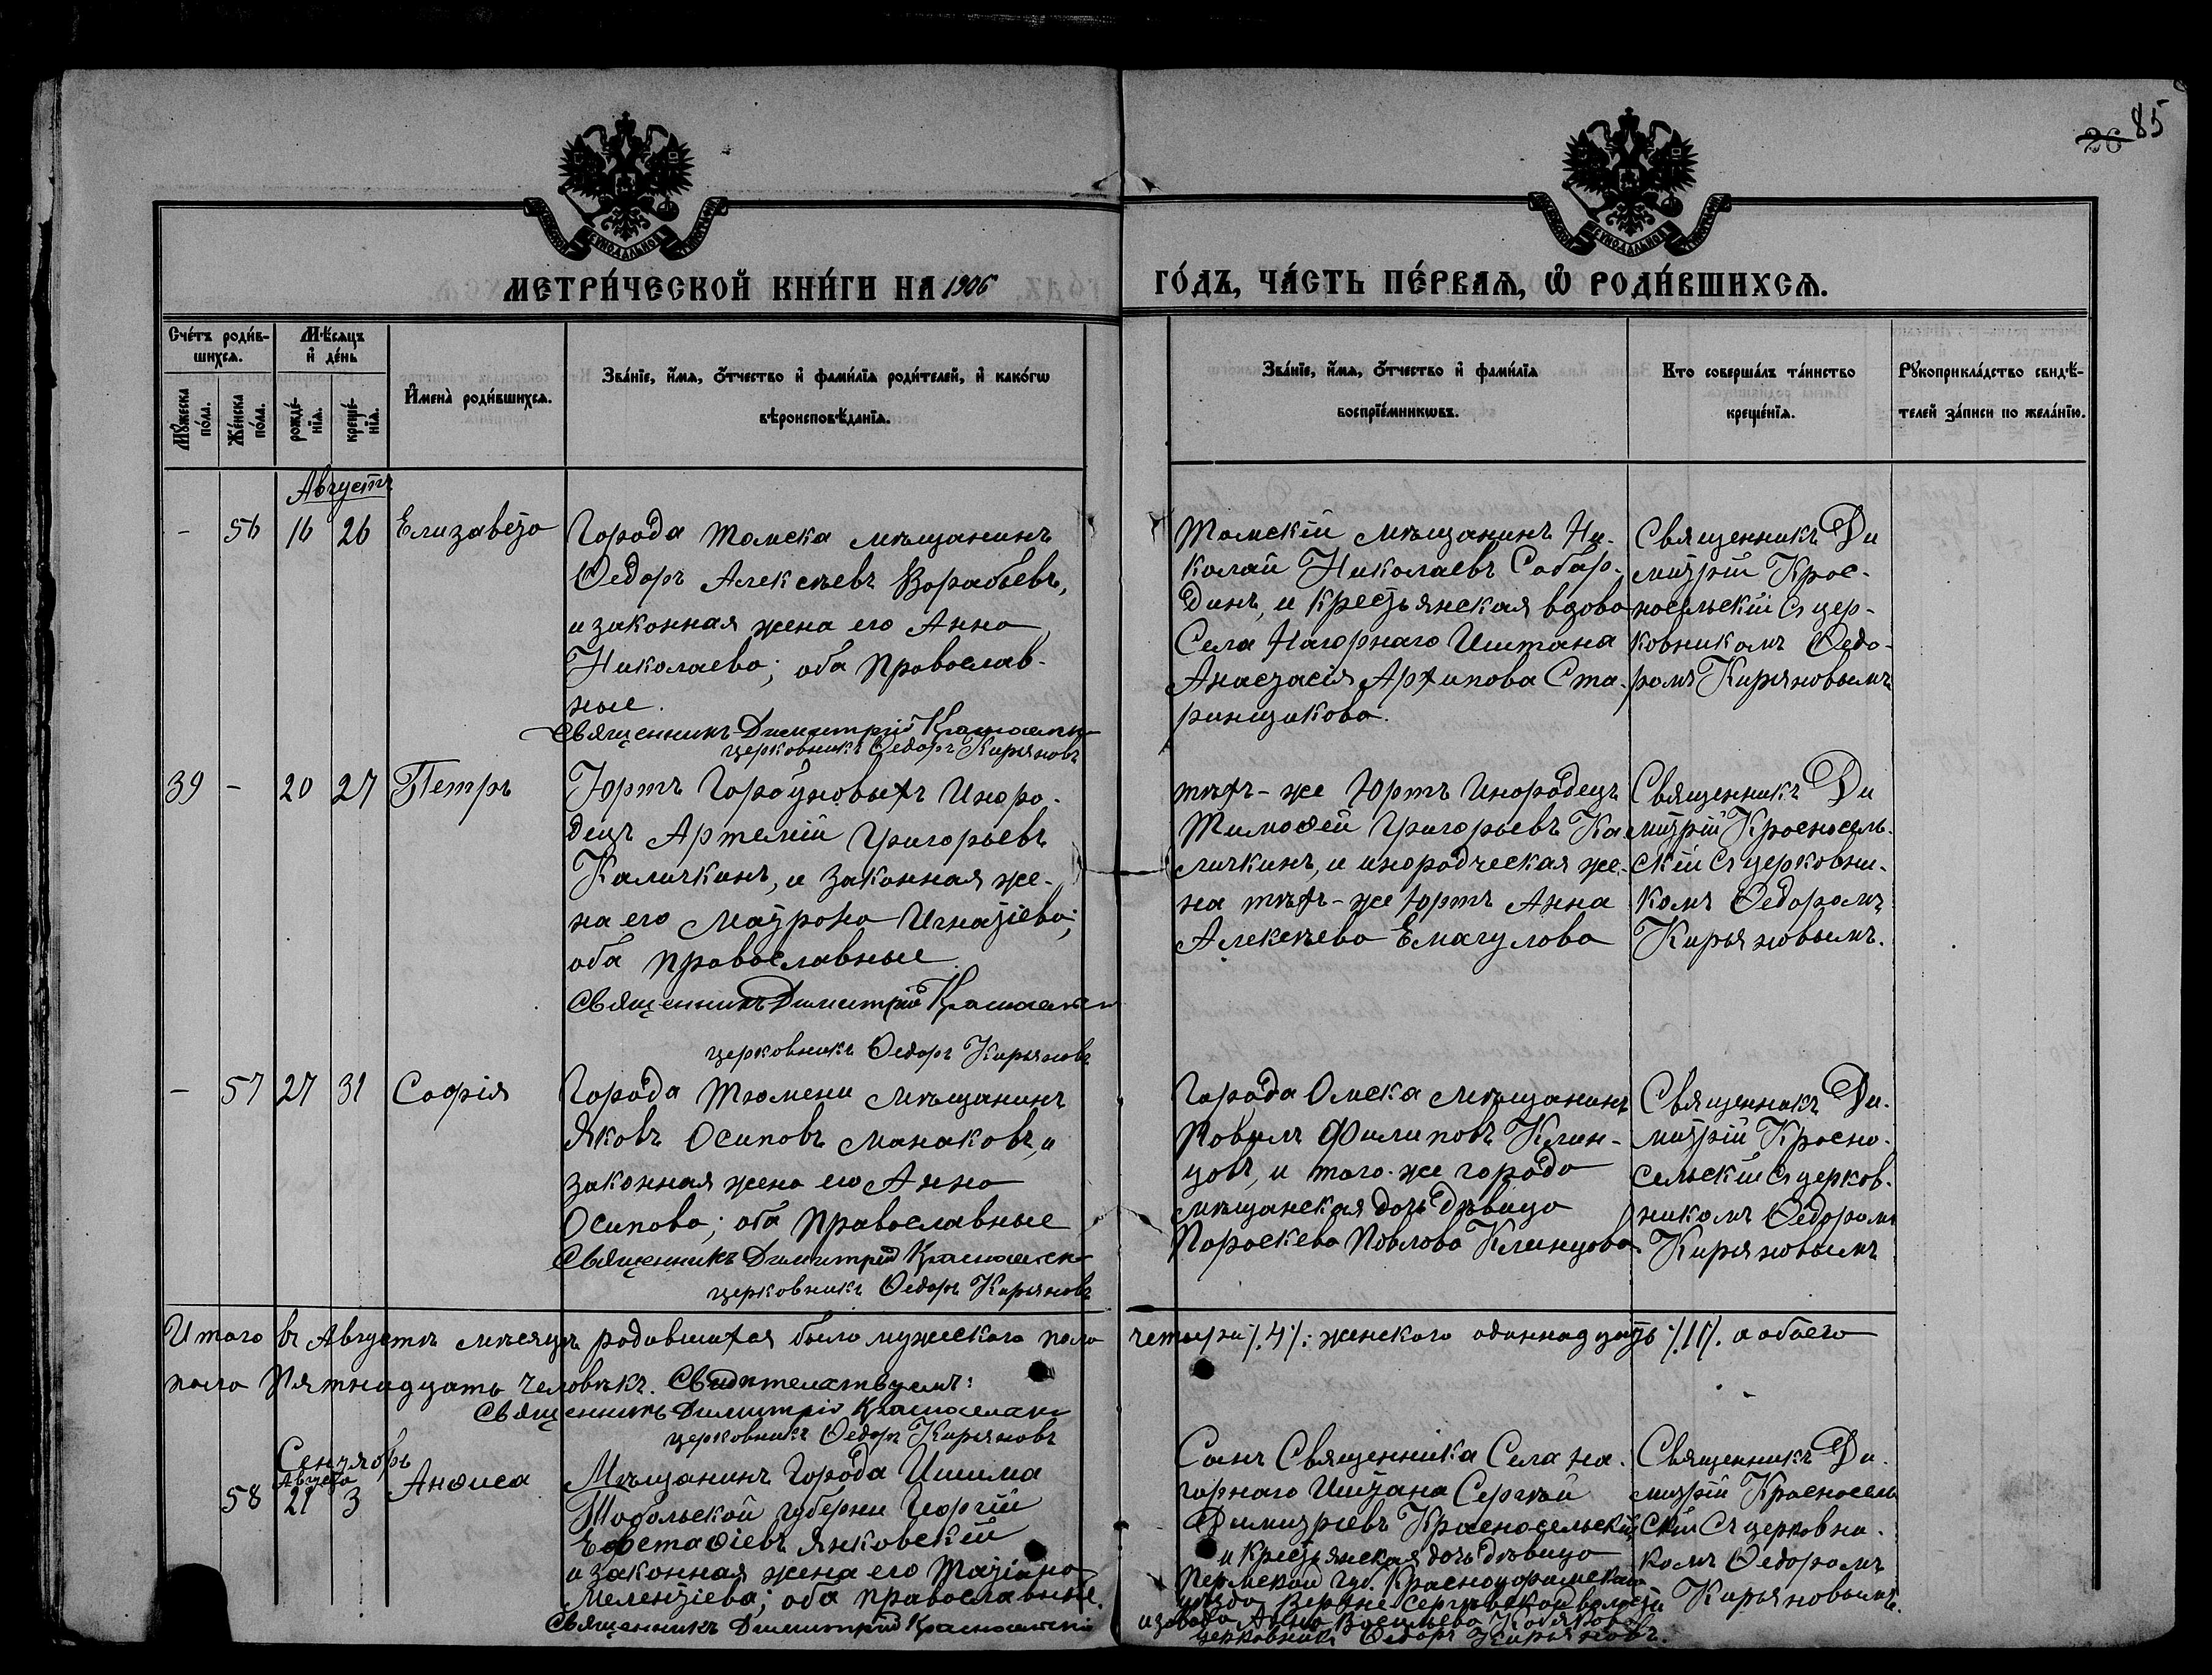 26 85
СѴНОДАЛЬНОЙ
СѴНОДАЛЬНОЙ
МЕТРИ́ЧЕСКОЙ КНИ́ГИ НА 1906
ГО́ДЪ, ЧА́СТЬ ПЕ́РВАѦ, Ѡ҆ РОДИ́ВШИХСѦ.
Сче́тъ роди́в-
шихсѧ.
Мꙋ́жеска по́ла.
Же́нска по́ла.
Мѣ́сѧцъ и҆ де́нь
рожде́-
нїѧ.
креще́-
нїѧ.
И҆мена̀ роди́вшихсѧ.
Зва́нїе, и҆́мѧ, ѻ҆́тчество и҆ фами́лїѧ роди́телей, и҆ како́гѡ
вѣроисповѣ́данїѧ.
Зва́нїе, и҆́мѧ, ѻ҆́тчество и҆ фами́лїѧ
воспрїе́мникѡвъ.
Кто соверша́лъ та́инство
креще́нїѧ.
Рꙋкоприкла́дство свидѣ́-
телей за́писи по жела́нїю.
Августъ
- 56 16 26 Елизавета
Города Томска мѣщанинъ
Ѳедоръ Алексѣевъ Воробьевъ,
и законная жена его Анна
Николаева; оба православ-
ные.
Священникъ Димитрій Красносельскій
церковникъ Ѳедоръ Кирьяновъ
Томскій мѣщанинъ Ни-
колай Николаевъ
и крестьянская вдова
Села Нагорнаго Иштана
Анастасія Архипова Ста-
ринщикова.
Священникъ Ди
митрій Крас-
носельскій съ цер-
ковникомъ Ѳедо-
ромъ Кирьяновымъ
39 - 20 27 Петръ
Юртъ Горбуновыхъ Иноро-
децъ Артемій Григорьевъ
Каличкинъ, и законная же-
на его Мавра Игнатіева;
оба православные
Священникъ Димитрій Красносельскій
церковникъ Ѳедоръ Кирьяновъ
тѣхъ-же Юртъ Инородецъ
Тимоѳей Григорьевъ Ка
личкинъ, и инородческая же-
на тѣхъ-же Юртъ Анна
Алексѣева Емагулова
Священникъ Ди
митрій Красносель-
скій съ церковни-
комъ Ѳедоромъ
Кирьяновымъ.
- 57 27 31 Софія
Города Тюмени мѣщанинъ
Яковъ Осиповъ Манаковъ, и
законная жена его Анна
Осипова; оба православные
Священникъ Димитрій Красносельскій
церковникъ Ѳедоръ Кирьяновъ
Города Омска мѣщанинъ
Павелъ Филиповъ Клин-
цовъ, и того-же города
мѣщанская дочь дѣвица
Параскева Павлова Клинцова
Священникъ Ди-
митрій Красно-
сельскій съ церков-
никомъ Ѳедоромъ
Кирьяновымъ
Итого въ Августѣ мѣсяцѣ родившихся было мужескаго пола четыре ./.4/. женскаго одиннадцать ./.11/. а обоего
пола пятнадцать человѣкъ. Свидѣтельствуемъ:
Священникъ Димитрій Красносельскій
церковникъ Ѳедоръ Кирьяновъ
Сентябрь
Августа
58 21 3 Анѳиса
Мѣщанинъ города Ишима
Тобольской губерніи Георгій
Евстаѳіевъ Янковскій
и законная жена его Татіана
Мелентіева; оба православные.
Священникъ Димитрій Красносельскій
Сынъ Священника Села На-
горнаго Иштана Сергѣй
Димитріевъ Красносельскій,
и крестьянская дочь дѣвица
Пермской губ. Красноуфимскаго
уѣзда Верхне Сергинской волости
и завода Анна Васильева
церковникъ Ѳедоръ Кирьяновъ.
Священникъ Ди-
митрій Красносель
скій съ церковни-
комъ Ѳедоромъ
Кирьяновымъ.